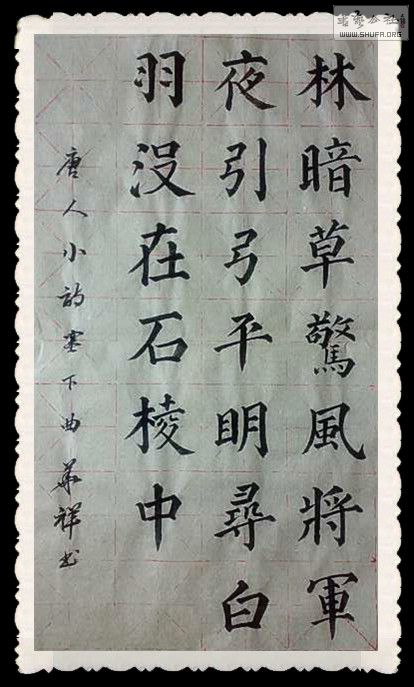 林暗草驚風將軍
夜引弓平明尋白
羽没在石棱中
唐人小韵塞下曲华祥书
书艺公社
WWW.SHUFA.ORG